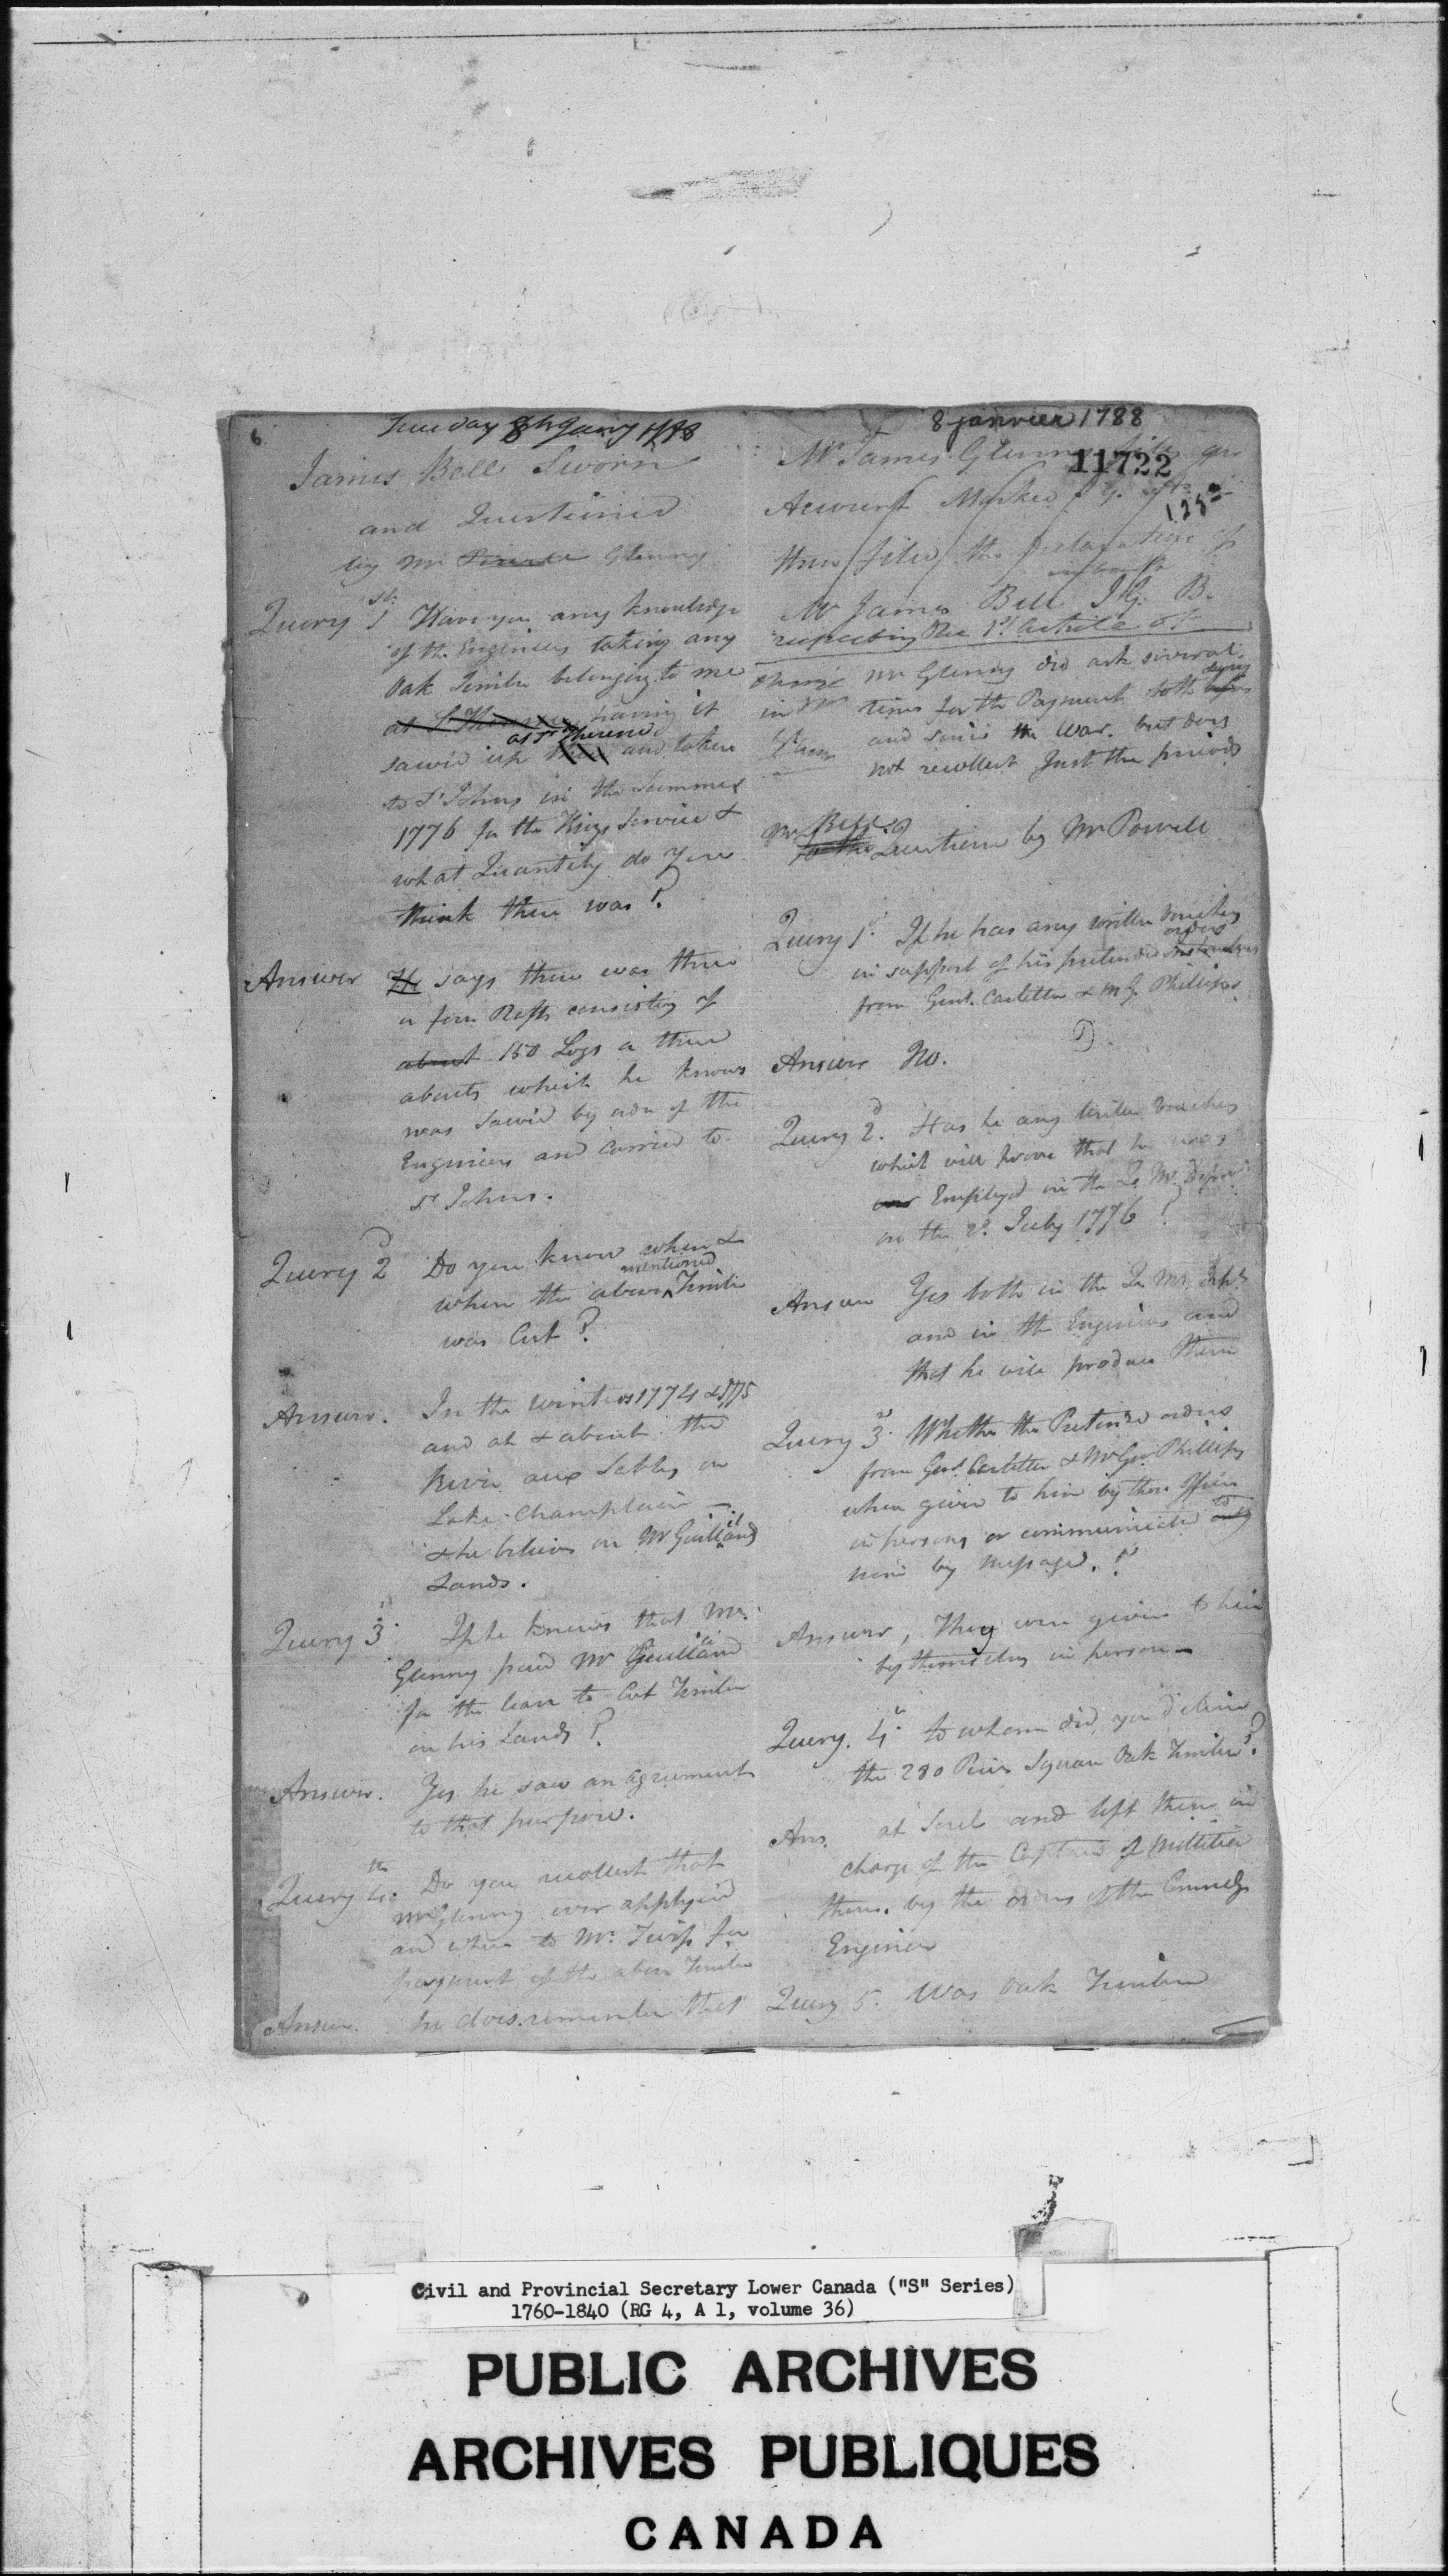 6
Tuesday 8th Jan'y 1788
James Bell Sworn
and Questioned
by Mr Glenny
Query 1st Have you any knowledge
of the Engineers taking any
Oak Timber belonging to me
having it
at St Therese
saw'd up and taken
to St Johns in the Summer
1776 for the Kings Service &
what Quantety do you
think there was?
Answer He says there was three
or four Rafts consisting of
about 150 Logs or there
abouts which he knows
was Saw'd by order of the
Engineers and Carried to
St Johns.
Query 2d Do you know when &
mentioned
where the above Timber
was Cut?
Answer. In the winters 1774 & 1775
and at & about the
River aux Sables on
Lake Champlain
& he believes on Mr Guilland's
Lands.
Query 3d If he knows that Mr
Glenny paid Mr Guilland
for the leave to Cut Timber
on his Lands?
Answer. Yes he saw an agreement
to that purpose.
Query 4th Do you recollect that
Mr Glenny ever applyed
and when to Mr Twiss for
payment of the above Timber
Answer. he does remember that
8 janvier 1788
11722
Mr James Glenny files
Account Marked
then files the Declaration of
Mr James Bell J.G. B.
respecting the 1st Article of
charge Mr Glenny did ask several
in times for the Payment both
and since the War. but does
not recollect Just the periods
Mr Bell
Questions by Mr Powell
Query 1st If he has any written Vouchers
orders
in support of his pretended
from Genl. Carletton & M G. Phillips
D.
Answer No.
Query 2d. Has he any written Vouchers
which will prove that he was
Employed in the Qr Mr
on the 2d. July 1776?
Answer Yes both in the Qr Mr
and in the Engineers and
that he will produce them
Query 3d. Whether the Pretend'd orders
from Genl. Carletton & M Gn Phillips
when given to him by those Officers
to
in persons or communicated
him by message.?
Answer, They were given to him
by themselves in person
Query. 4th. to whom did you deliver
the 280 Peices Square Oak Timber?
Ans. at Sorel and left them in
charge of the Captain of Millitia
there. by the orders of the Commdg
Engineer
Query 5. Was Oak Timber
Civil and Provincial Secretary Lower Canada ("S" Series)
1760-1840 (RG 4, A 1, volume 36)
PUBLIC ARCHIVES
ARCHIVES PUBLIQUES
CANADA